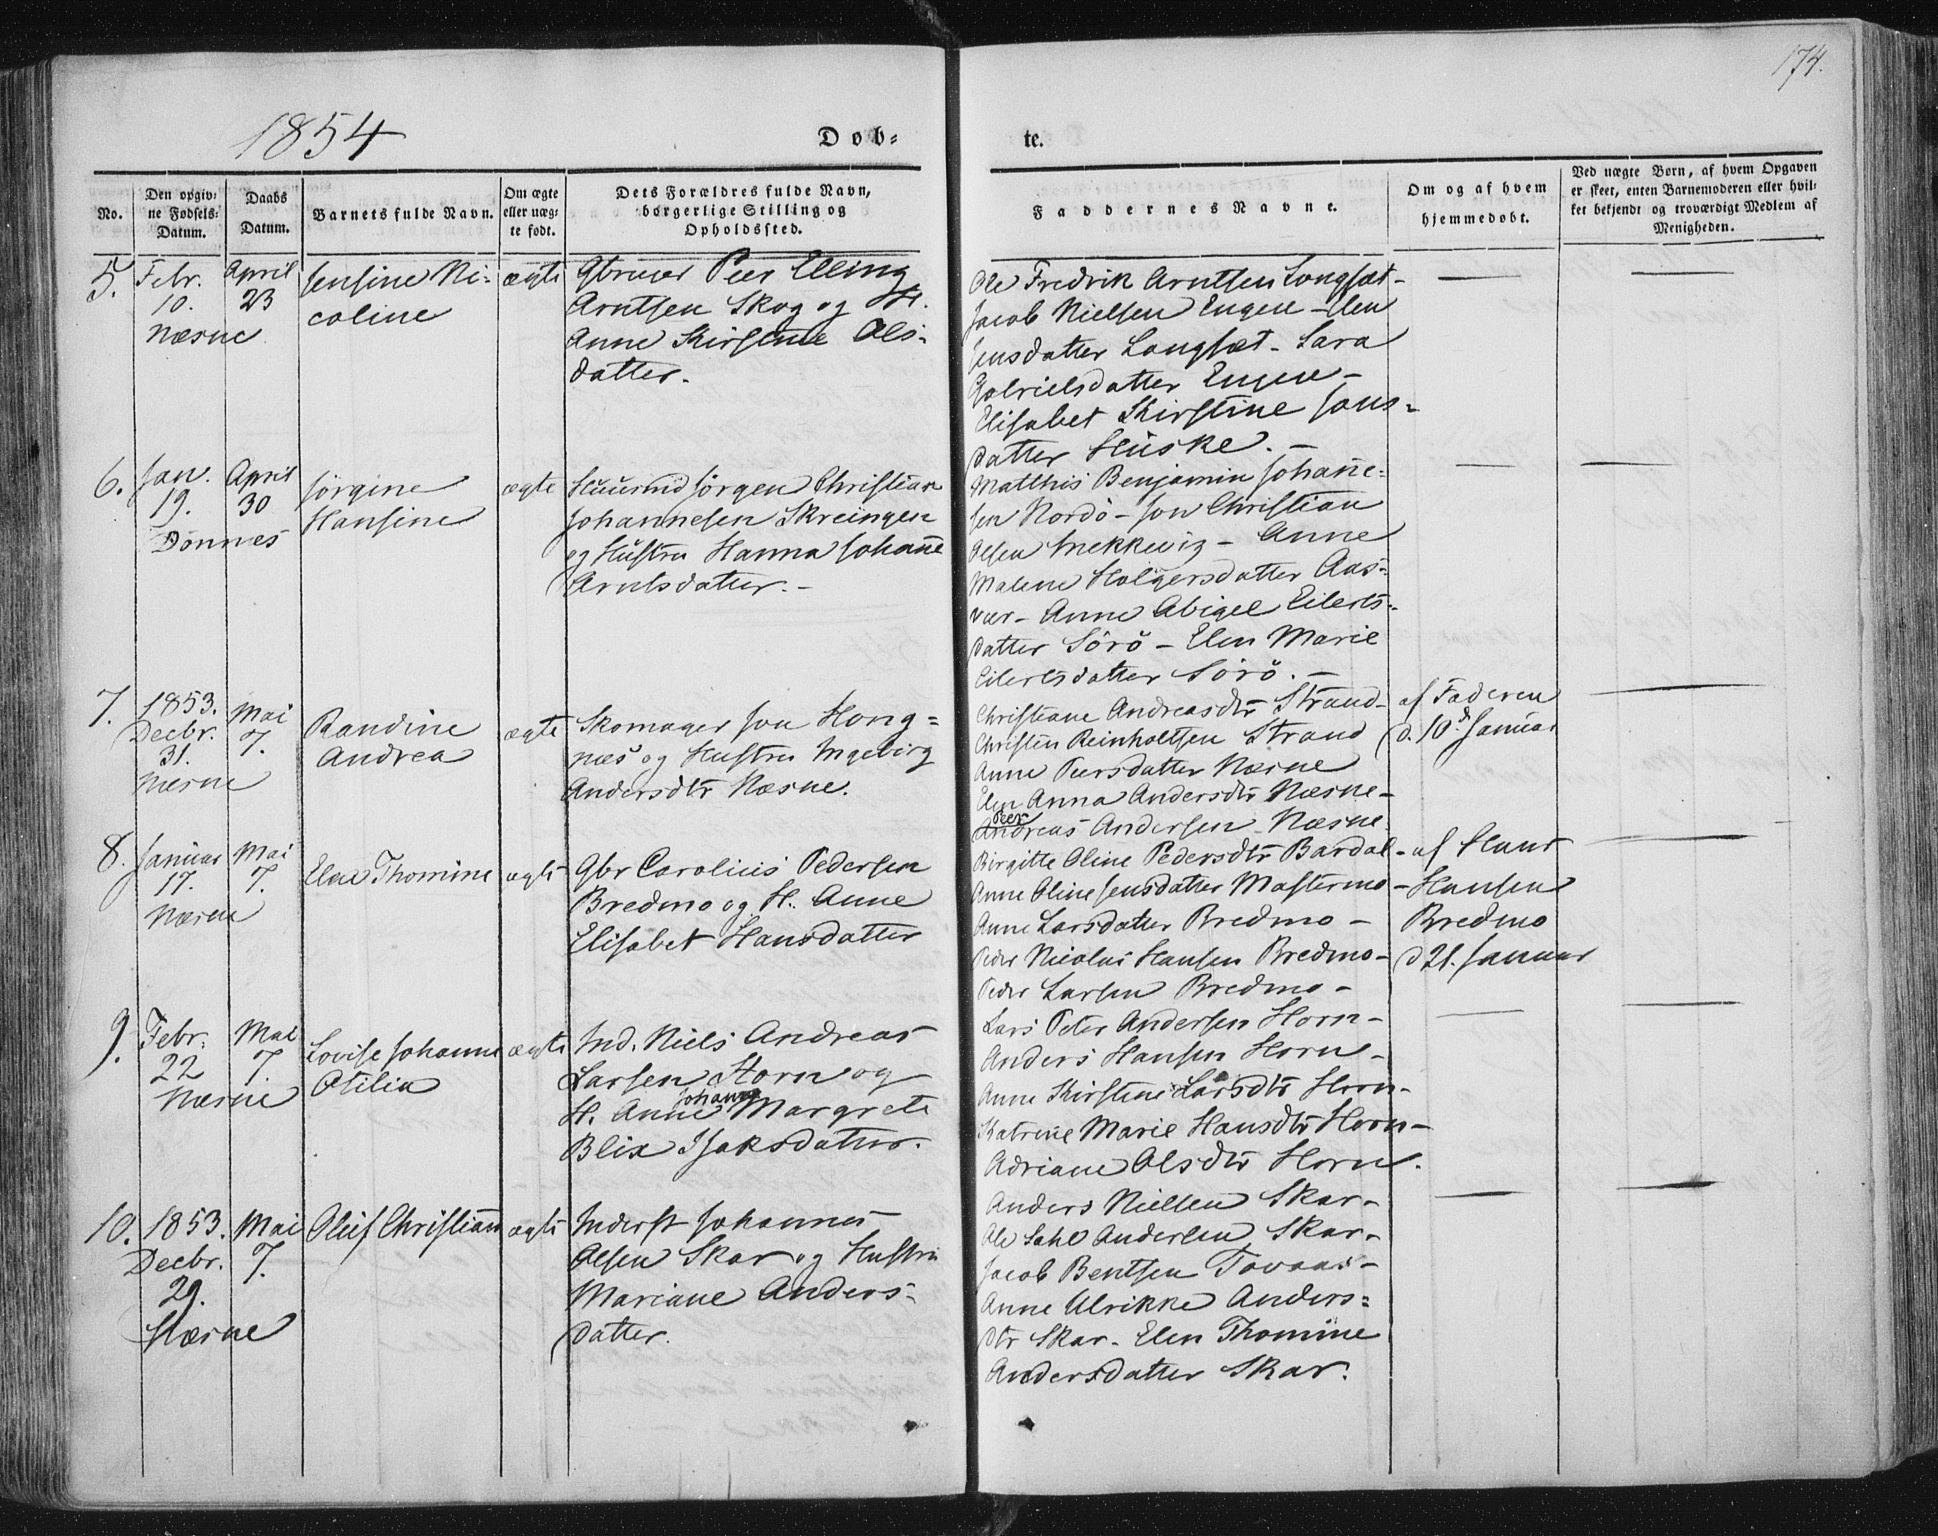 174.
1854
Døb=
te.
No.
Den opgiv=
ne Fødsels=
Datum.
Daabs
Datum.
Barnets fulde Navn.
Om ægte
eller uæg=
te født.
Dets Forældres fulde Navn,
borgerlige Stilling og
Opholdssted.
Faddernes Navne.
Om og af hvem
hjemmedøbt.
Ved uægte Børn, af hvem Opgaven
er skeet, enten Barnemoderen eller hvil=
ket bekjendt og troværdigt Medlem af
Menigheden.
5.
Febr.
10.
Næsne
April
23
Jensine Ni=
coline
ægte
Gbruer Peer Elling
Arntsen Skog og H.
Anne Kirstine Ols=
datter.
Ole Fredrik Arntsen Longsæt-
Jacob Nielsen Engen - Elen
Jensdatter Longsæt - Sara
Gabrielsdatter Engen -
Elisabet Kirstine Jons=
datter Huske. -
6.
Jan.
19.
Dønnes
April
30
Jørgine
Hansine
ægte
Huusmd Jørgen Christian
Johannesen Skreingen
og Hustru Hanna Johane
Arntsdatter. -
Matthis Benjamin Johanne=
sen Nordö - Jon Christian
Olsen - Anne
Malene Holgersdatter Aas=
vær - Anne Abigel Eilerts=
datter Sörö - Elen Marie
Eilertsdatter Sörö. -
7.
1853.
Decbr.
31.
Næsne
Mai
7.
Randine
Andrea
ægte
Skomager Jon Hong=
næs og Hustru Ingebirg
Andersdtr Næsne.
Christiane Andreasdtr Strand-
Christen Reinholtsen Strand
Anne Peersdatter Næsne
Elen Anna Andersdtr Næsne-
Peer
Andreas Andersen Næsne
af Faderen
d. 10d Januar
8.
Januar
17.
Næsne
Mai
7.
Elen Thomine
ægte
Gbr Carolius Pedersen
Bredmo og H. Anne
Elisabet Hansdatter
Birgitte Oline Pedersdtr Bardal-
Anne Oline Jensdatter Mastermo-
Anne Larsdatter Bredmo -
Peder Nicolai Hansen Bredmo-
Peder Larsen Bredmo -
af Hans
Hansen
Bredmo
d 21. Januar
9.
Febr.
22
Næsne
Mai
7.
Lovise Johanne
Otilia
ægte
Ind. Niels Andreas
Larsen Horn og
Johanna
H. Anne Margrete
Blix Isaksdatter.
Lars Peter Andersen Horn-
Anders Hansen Horn-
Anne Kirstine Larsdtr Horn-
Katrine Marie Hansdtr Horn-
Adriane Olsdtr Horn.
10.
1853.
Decbr.
29.
Næsne
Mai
7.
Oluf Christian
ægte
Inderst Johannes
Olsen Skar og Hustru
Mariane Anders=
datter.
Anders Nielsen Skar-
Ole Andersen Skar-
Jacob Bentsen Tovaas-
Anne Ulrikke Anders=
dtr Skar - Elen Thomine
Andersdatter Skar.